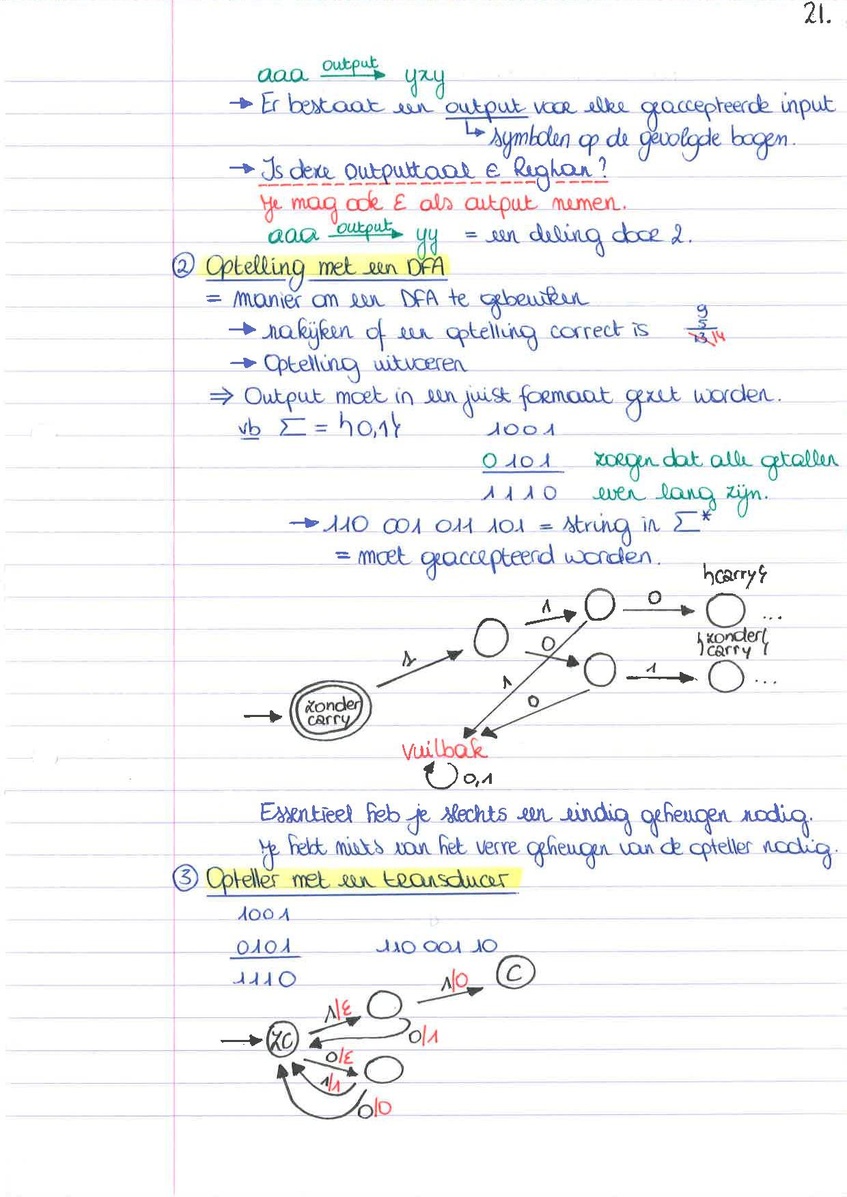 21.
aaa output→ yxy
→ Er bestaat een output voor elke geaccepteerde input
↳ symbolen op de gevolgde bogen.
→ Is deze outputtaal ∈ Reglan?
Je mag ook ε als output nemen.
aaa output→ yy = een deling door 2.
② Optelling met een DFA
= manier om een DFA te gebruiken
→ nakijken of een optelling correct is 9
5
13 14
→ Optelling uitvoeren
⇒ Output moet in een juist formaat gezet worden.
vb Σ = {0,1} 1001
0101 zorgen dat alle getallen
1110 even lang zijn.
→ 110 001 011 101 = string in Σ*
= moet geaccepteerd worden.
{carry}
1 0 ...
{zonder carry}
1 0 1 ...
zonder carry
1 0
vuilbak
0,1
Essentieel heb je slechts een eindig geheugen nodig.
Je hebt niets van het verre geheugen van de opteller nodig.
③ Opteller met een transducer
1001
0101 110 001 10
1110
1/0 C
1/ε
ZC 0/1
0/ε
1/1
0/0